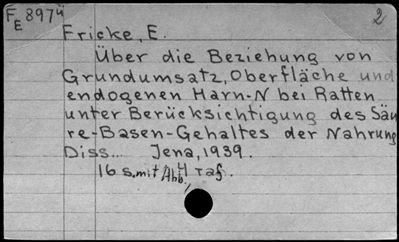 F 8974 2
E
Fricke, E.
Über die Beziehung von
Grundumsatz, Oberfläche und
endogenen Harn-N bei Ratten
unter Berücksichtigung des Säu
re-Basen-Gehaltes der Nahrung
Diss... Jena, 1939.
16 s. mit Abb. 4 Taf.